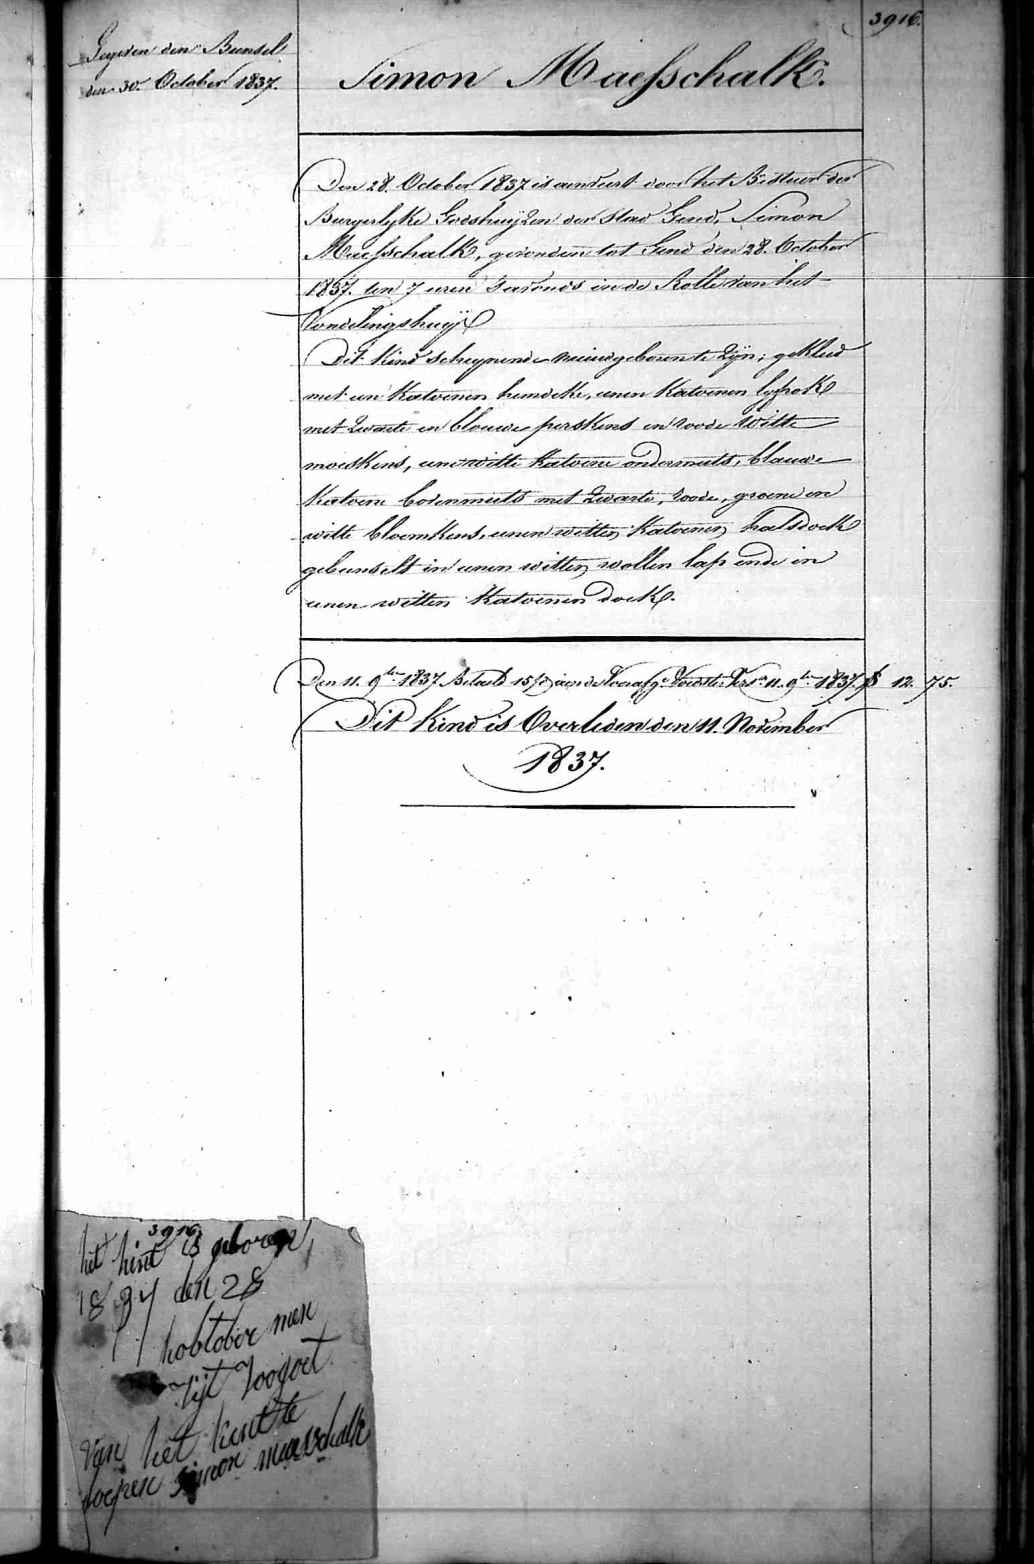 3916.
Gegeven den Bunsel
den 30. October 1837.
Simon Maesschalk.
Den 28. October 1837 is aenveert door het Bestuur der
Burgerlyke Godshuijzen der Stad Gend, Simon
Maesschalk, gevonden tot Gend den 28. October
1837. ten 7 uren s'avonds in de Rolle van het
Vondelingshuijs
Dit Kind scheynende nieuwgeboren te zyn; gekleed
met een Katoenen hemdeke, eenen Katoenen lyfrok
met zwarte en blouwe perskens en roode witte
moeskens, eene witte Katoene ondermuts, blauwe
Katoene bovenmuts met zwarte, roode, groene en
witte bloemkens, eenen witten Katoenen halsdoek
gebunselt in eenen witten wollen lap ende in
eenen witten Katoenen doek.
Den 11. 9ber 1837 Betaelt 15 aende 11. 9ber 1837. 12. 75.
Dit Kind is Overleden den 11. November
1837.
3916
het kint is geboren
1837 den 28
hobtober men
lijt zoogoet
van het kint te
doepen simon maeschalk